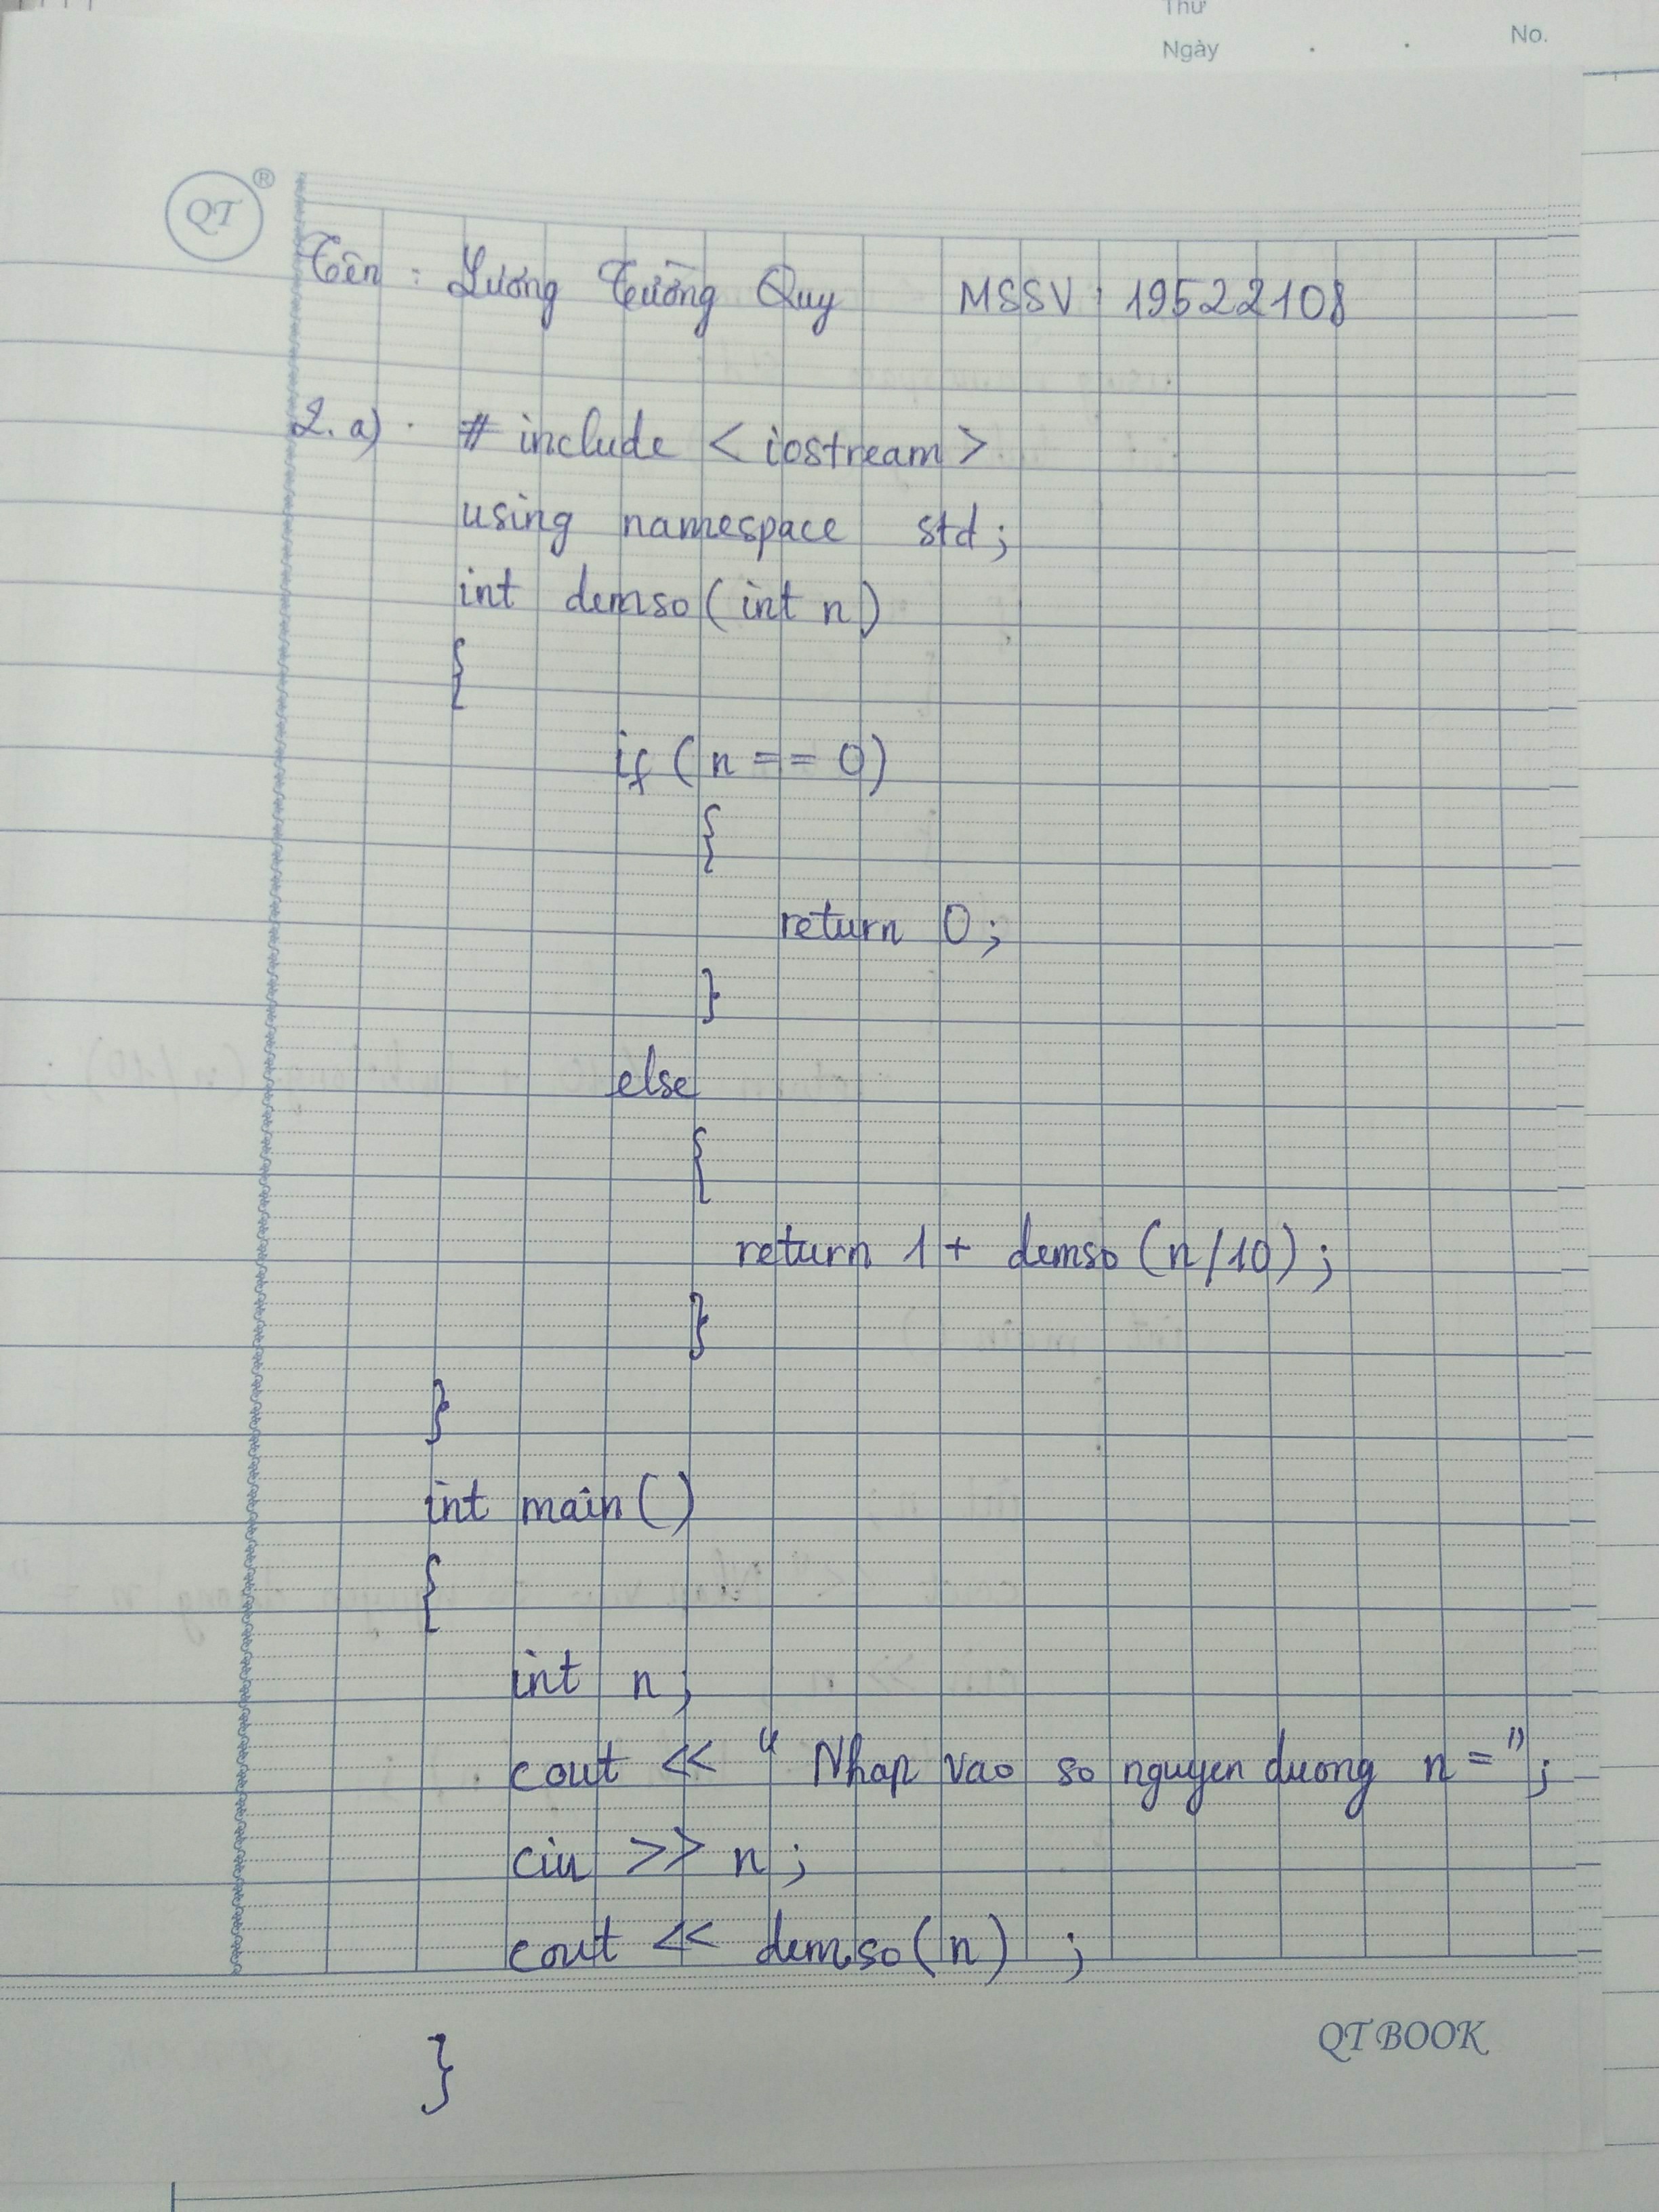 Thứ
Ngày . . No.
QT ®
Tên : Lương Tường Quy MSSV : 19522108
2. a) . # include < iostream >
using namespace std ;
int demso ( int n )
{
if ( n == 0 )
{
return 0 ;
}
else
{
return 1 + demso ( n / 10 ) ;
}
}
int main ( )
{
int n ;
cout << " Nhap vao so nguyen duong n = " ;
cin >> n ;
cout << demso ( n ) ;
}
QT BOOK